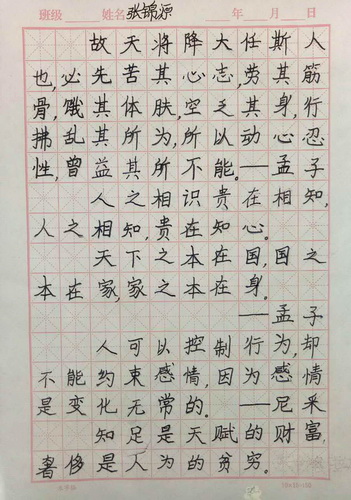 班级 姓名 张锦源 年 月 日
故天将降大任斯人
也,必先苦其心志,劳其筋
骨,饿其体肤,空乏其身,行
拂乱其所为,所以动心忍
性,曾益其所不能。—孟子
人之相识贵在相知,
人之相知,贵在知心。
天下之本在国,国之
本在家,家之本在身。
—孟子
人可以控制行为,却
不能约束感情,因为感情
是变化无常的。—尼采
知足是天赋的财富,
奢侈是人为的贫穷。